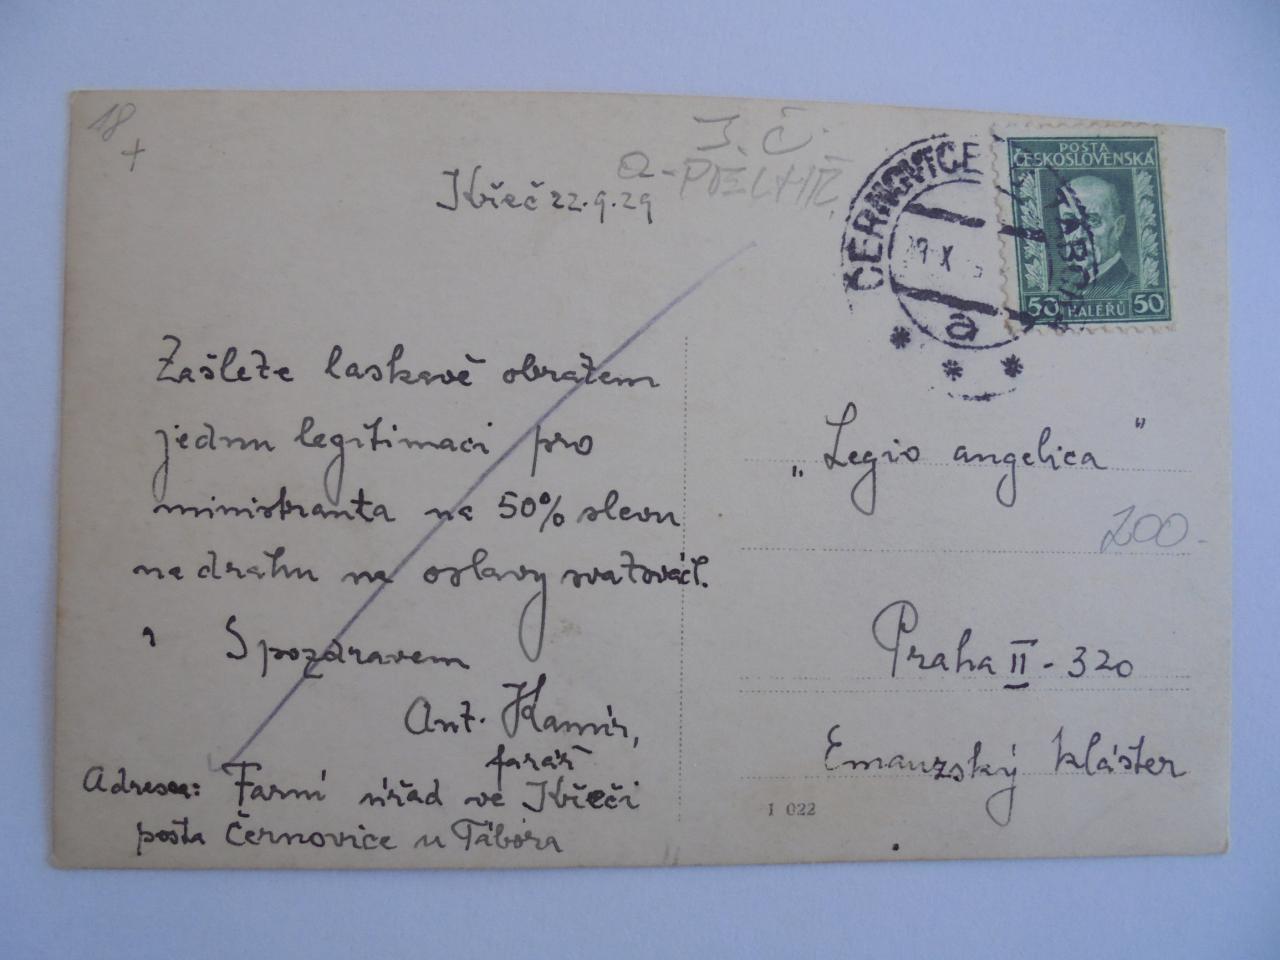 18
+
J. Č.
a - PELHŘ.
Křeč 22.9.29
ČERNOVICE
TÁBORA
POSTA
ČESKOSLOVENSKÁ
50 HALÉŘŮ 50
a
Zašlete laskavě obratem
jednu legitimaci pro
ministranta na 50% slevu
na dráhu na oslavy svatovácl.
S pozdravem
Ant. Kamír,
farář
Adresa: Farní úřad ve Křeči
pošta Černovice u Tábora
„Legio angelica"
200.-
Praha II - 320
Emauzský klášter
1 022